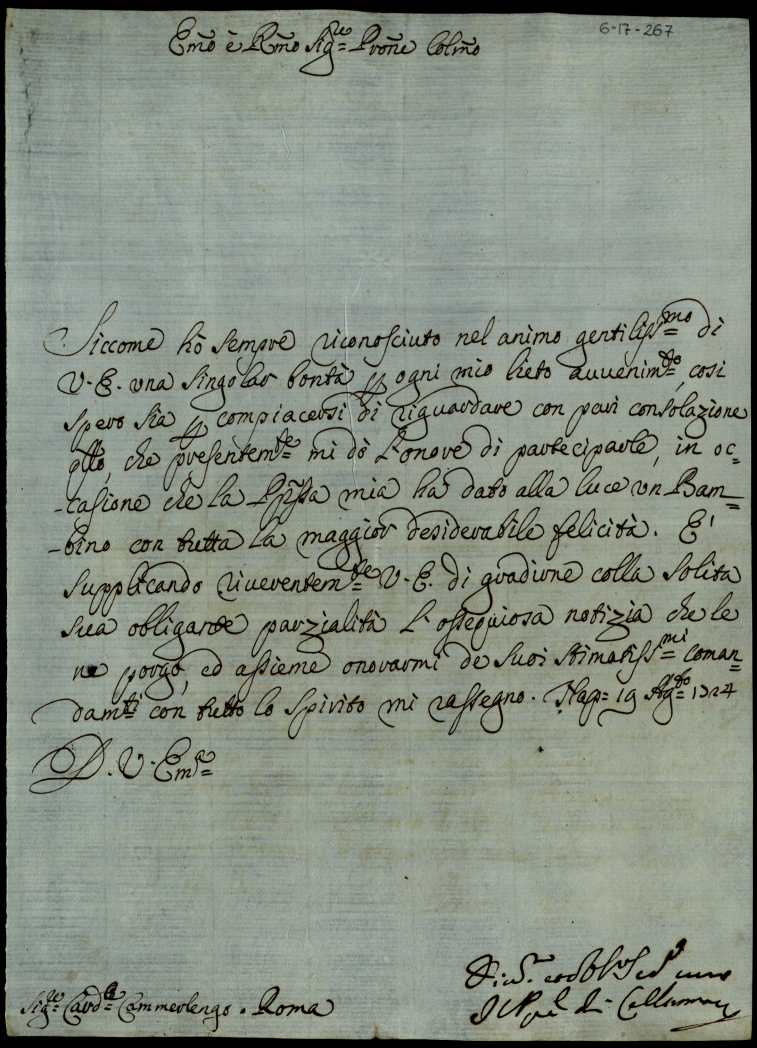 6-17-267
Emo è Rmo Sigre Prone Colmo
Siccome hò sempre riconosciuto nel animo gentilissmo di
V. E. una singolar bontà p ogni mio lieto auuenimto, cosi
spero sia p compiacersi di riguardare con pari consolazione
qllo, che presentemte mi dò l'onore di participarle, in oc=
-casione che la Pnssa mia ha dato alla luce un Bam=
-bino con tutta la maggior desiderabile felicità. E'
supplicando riuerentemte V. E. di gradirne colla solita
sua obligante parzialità l'ossequiosa notizia che le
ne porgo, ed assieme onorarmi de suoi stimatissmi coman=
damti con tutto lo spirito mi rassegno. Nap= 19 Agto
D. V. Emza
Sigre Cardle Cammerlengo. Roma
di